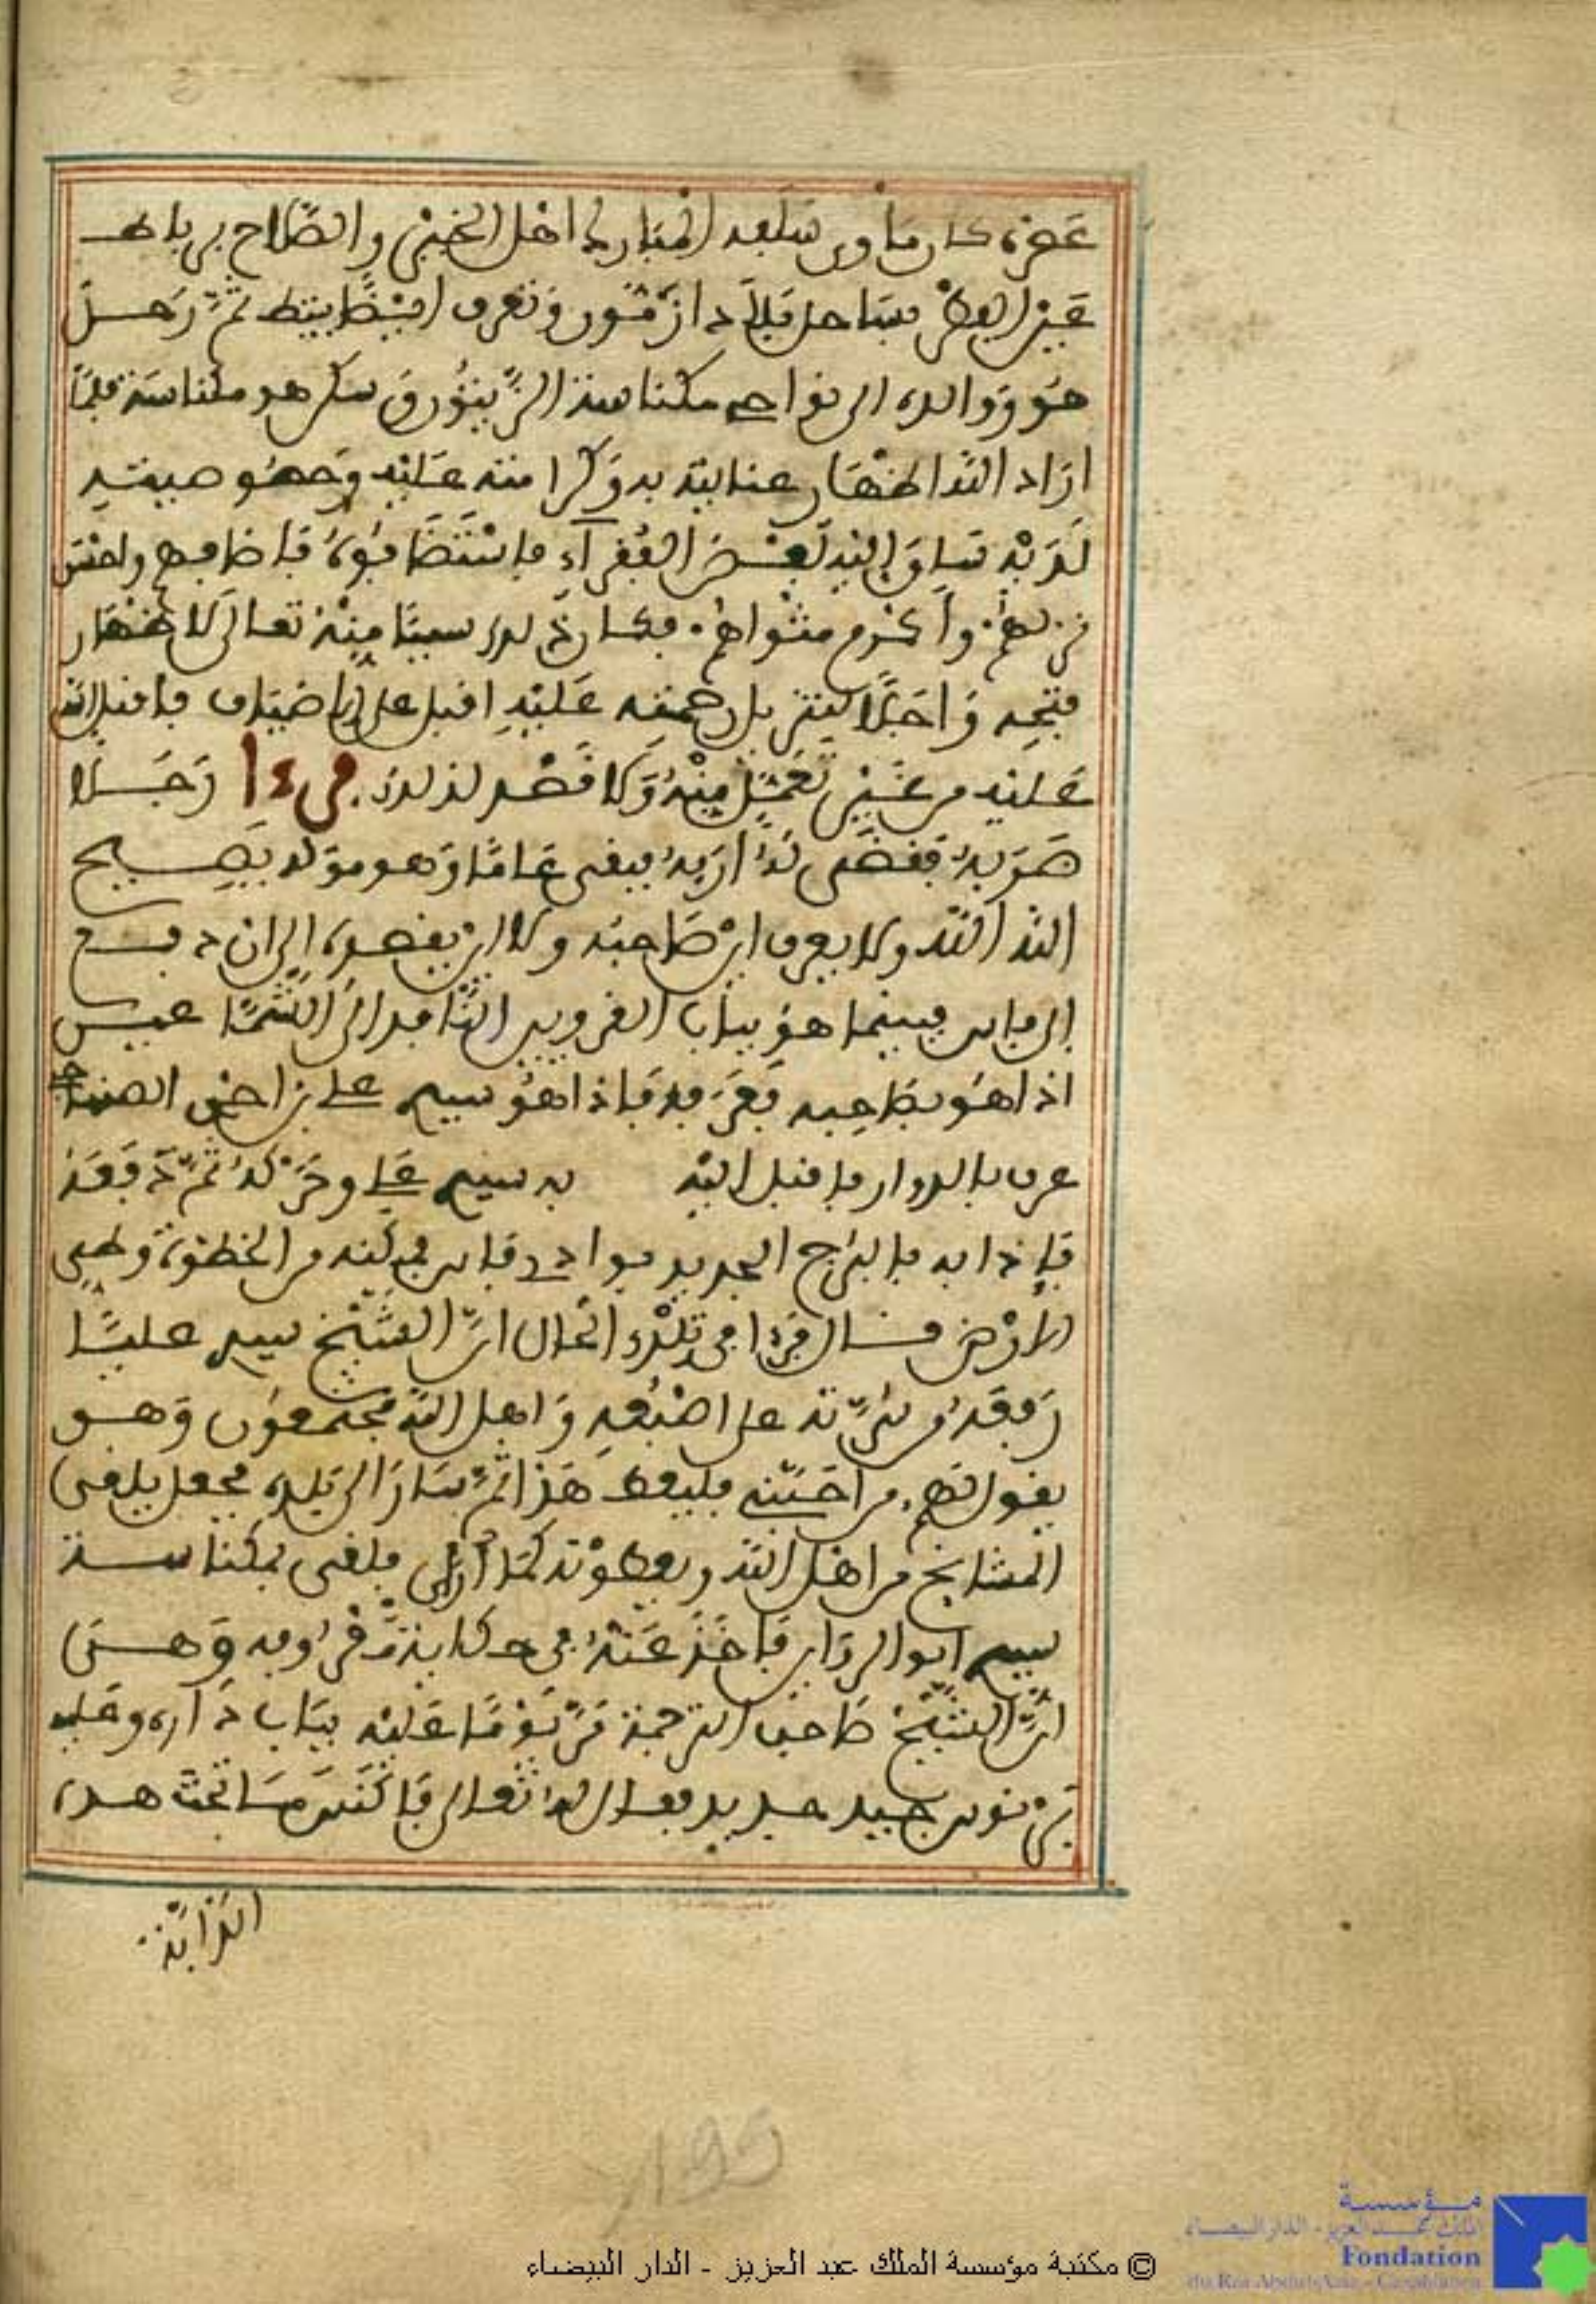 عصره كان مأوى سلفه المبارك اهل الخير والصلاح برباط
عين الفطر بساحل بلاد ازمور وتعرف اليوض بتيط ثم رحل
هو ووالده الى نواحي مكناسة الزيتون سكن هو مكناسة فلما
اراد الله اظهار عنايته به وكرامته عليه وخصوصيته
لديه ساق اليه بعض الفقراء فاستضافوه فاضافهم واحسن
نزلهم واكرم مثواهم فكان ذلك سببا منه تعالى لاظهار
فتحه واجلا لتنزيل رحمته عليه اقبل على الاضياف فاقبل الله
عليه من غير تعمل منه ولا قصد لذلك فرءا رجلا
ضربه فقضى له اربه فبقي عاما وهو موله يصيح
الله الله ولا يعرف اين صاحبه ولا اين يقصده الى ان دفع
الى فاس فبينما هو بباب القرويين النافد الى الشماعين
اذا هو بصاحبه فعرفه فاذا هو سيدي علي بن احمد الصنهاجي
عرف بالدوار فاقبل اليه به سيدي علي وحركه ثم دفعه
فاذا به بالبرج الجديد بوادي فاس في ليلة من الخطوة وطي
الارض قال فرءا في تلك الحال ان الشيخ سيدي عليا
رفعه وشرته على اصبعه واهل الله مجتمعون وهو
يقول لهم من احبني فليعط هذا ثم سار الى بلده فجعل يلقى
المشايخ من اهل الله ويعطونه كما رأى فلقي بمكناسة
سيدي ابو الرواين فاخذ عنه في حكاية مرفرفة وهي
ان الشيخ صاحب الترجمة مر يوما عليه بباب داره وعليه
برنوس جيد جديد فقال له تعالى فاكنس ما تحت هذه
الدابة
© مكتبة مؤسسة الملك عبد العزيز - الدار البيضاء
مؤسسة
الملك عبد العزيز - الدار البيضاء
Fondation
du Roi Abdul-Aziz - Casablanca